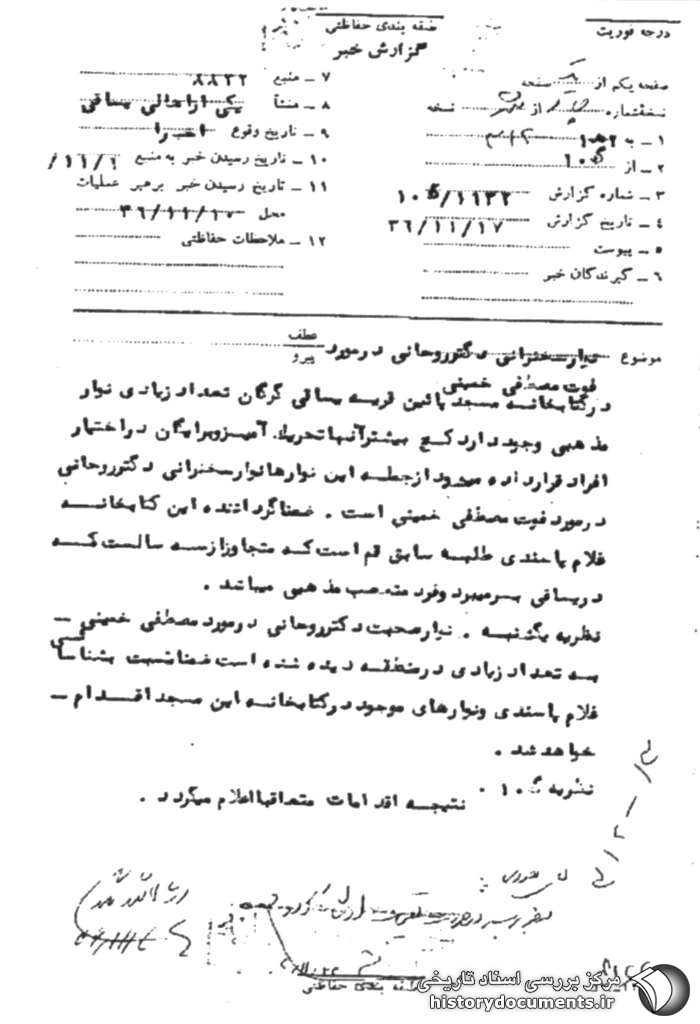 طبقه بندی حفاظتی
گزارش خبر
درجه فوریت
صفحه یکم از یک صفحه
نسخه شماره از نسخه
۱ ـ به ۳۰۲
۲ ـ از ۱۰ ک
۳ ـ شماره گزارش ۱۰ک/۱۱۳۲
۴ ـ تاریخ گزارش ۳۶/۱۱/۱۷
۵ ـ پیوست
۶ ـ گیرندگان خبر
۷ ـ منبع ۸۸۲۲
۸ ـ منشأ یکی از اهالی یساقی
۹ ـ تاریخ وقوع اخیرا
۱۰ ـ تاریخ رسیدن خبر به منبع ۱۱/۶/
۱۱ ـ تاریخ رسیدن خبر برهبر عملیات
محل ۳۶/۱۱/۱۰
۱۲ ـ ملاحظات حفاظتی
موضوع نوارسخنرانی دکترروحانی درمورد
عطف
پیرو
فوت مصطفی خمینی
درکتابخانه مسجد پائین قریه یساقی گرگان تعداد زیادی نوار
مذهبی وجود دارد که بیشتر آنها تحریک آمیز وبرایگان در اختیار
افراد قرار داده میشود ازجمله این نوارها نوارسخنرانی دکترروحانی
درمورد فوت مصطفی خمینی است . ضمنا گرداننده این کتابخانه
غلام پاسندی طلبه سابق قم است که متجاوز ازسه سالست که
دریساقی بسرمیبرد وفرد متعصب مذهبی میباشد .
نظریه یکشنبه . نوارصحبت دکترروحانی درمورد مصطفی خمینی ـ
به تعداد زیادی درمنطقه دیده شده است ضمنا نسبت بشناسائی
غلام پاسندی ونوارهای موجود درکتابخانه این مسجد اقدام ـ
خواهد شد .
نظریه ۱۰ ک . نتیجه اقدامات متعاقبا اعلام میگردد .
طبقه بندی حفاظتی
مرکز بررسی اسناد تاریخی
historydocuments.ir